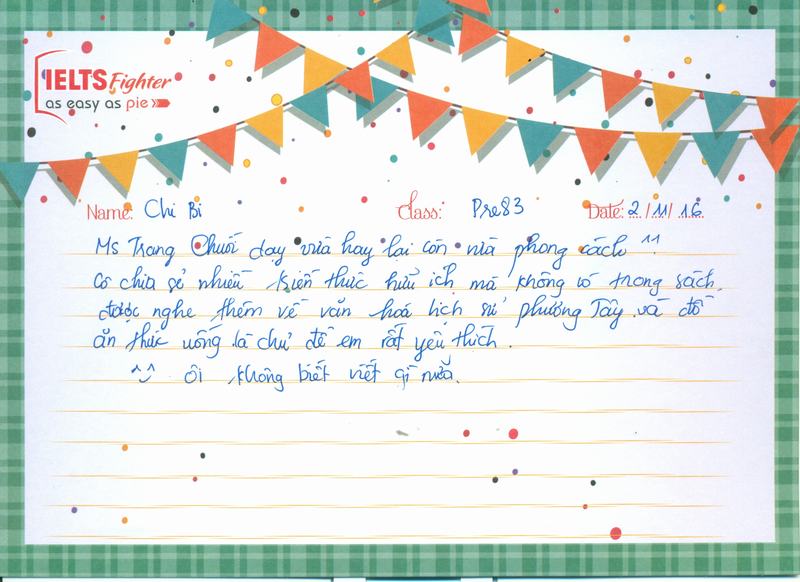 IELTS Fighter
as easy as pie
Name: Chi Bi Class: Pre83 Date: 2/11/16
Ms Trang Chuối dạy vừa hay lại còn nữa phong cách ^^.
Cô chia sẻ nhiều kiến thức hữu ích mà không có trong sách.
được nghe thêm về văn hoá lịch sử phương Tây và đồ
ăn thức uống là chủ đề em rất yêu thích.
ôi không biết viết gì nữa.